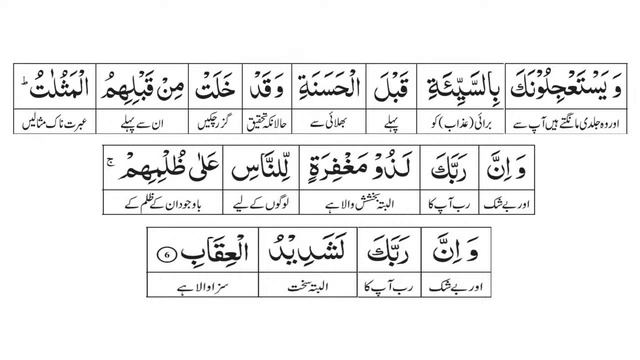 وَيَسْتَعْجِلُوْنَكَ بِالسَّيِّئَةِ قَبْلَ الْحَسَنَةِ وَقَدْ خَلَتْ مِنْ قَبْلِهِمُ الْمَثُلٰتُ ؕ
اور وہ جلدی مانگتے ہیں آپ سے برائی (عذاب) کو پہلے بھلائی سے حالانکہ تحقیق گزر چکیں ان سے پہلے عبرت ناک مثالیں
وَاِنَّ رَبَّكَ لَذُوْ مَغْفِرَةٍ لِّلنَّاسِ عَلٰى ظُلْمِهِمْ ۚ
اور بے شک رب آپ کا البتہ بخشش والا ہے لوگوں کے لیے باوجود ان کے ظلم کے
وَاِنَّ رَبَّكَ لَشَدِيْدُ الْعِقَابِ ۶
اور بے شک رب آپ کا البتہ سخت سزا والا ہے